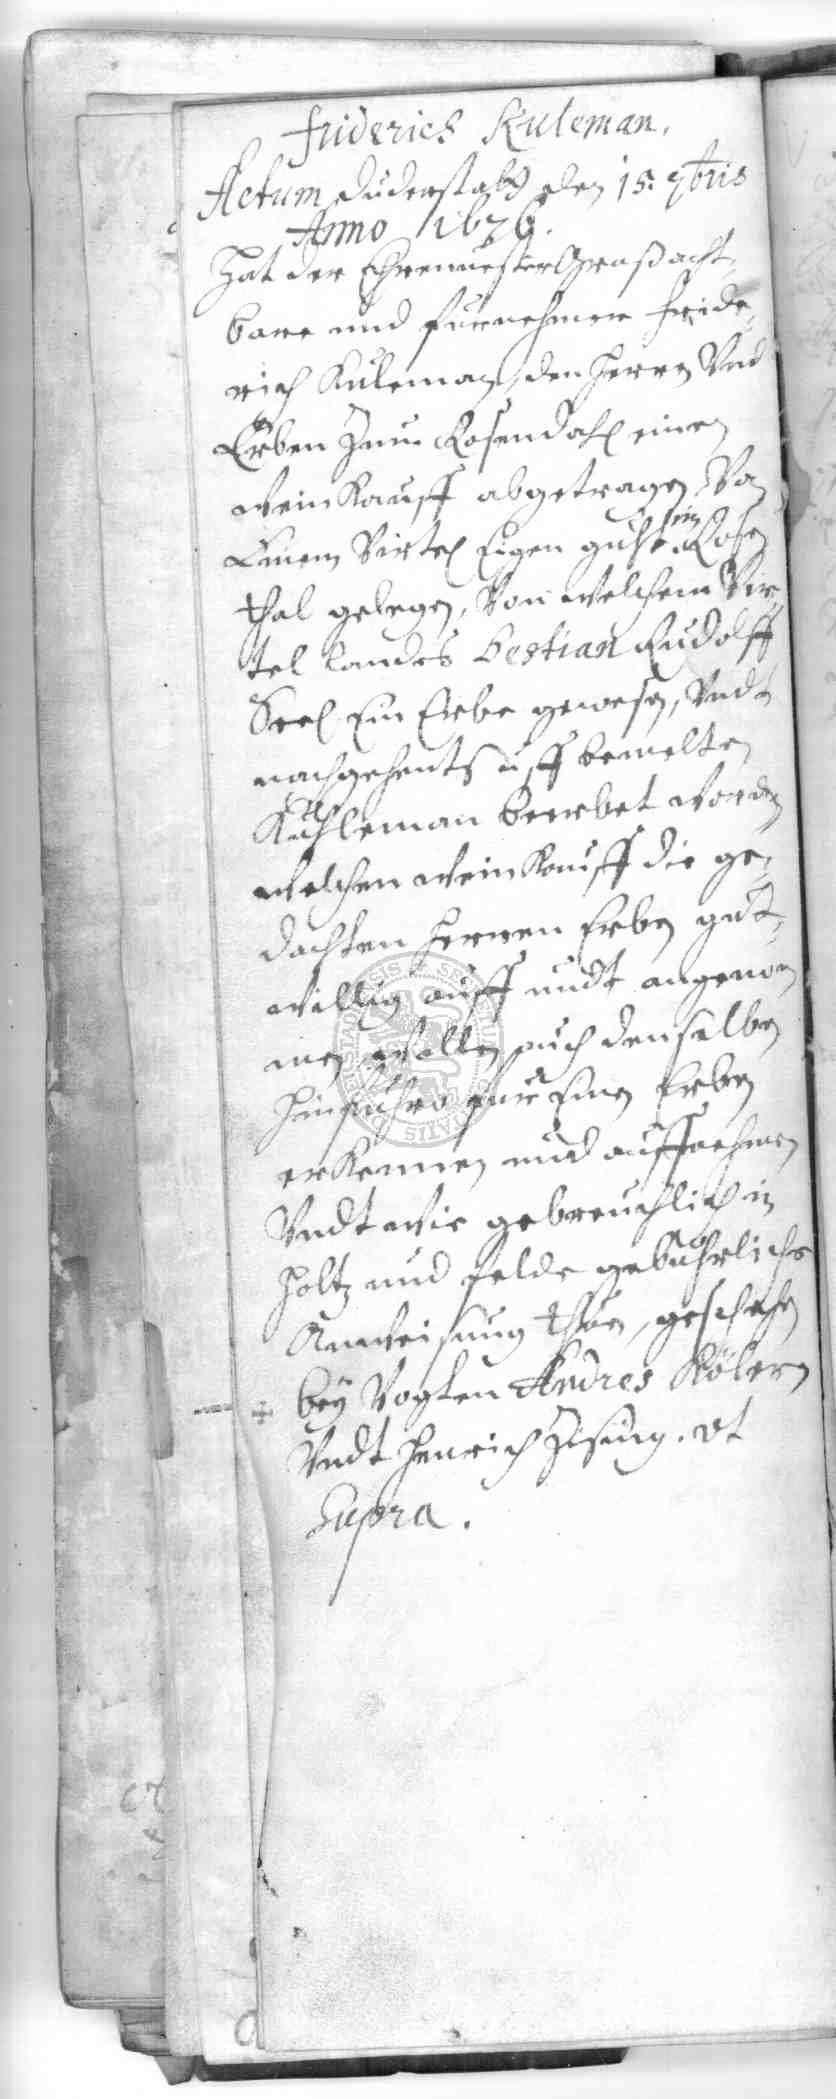 Friderich Kuleman.
Actum Duderstadt den 15. 9bris
Anno 1676.
Hat der Ehrenvester Großacht„
bare und furnehmer Fride„
rich Kuleman, den Herren Und
Erben Zum Rosendahl einen
weinKauff abgetragen Von
Einem Virtel Eigen guht im Rosen
thal gelegen, Von welchem Vir„
tel landes Bestian Rudolff
Seel Ein Erbe gewesen, Undt
nachgehents uff bemelten
Kuhleman beerbet worden
welchen weinKauff die ge„
dachten Herren Erben gut„
willig auff undt angenom
men, wollen auch denselben
hinfuhro fur Einen Erben
erKennen und auffnehmen
Undt wie gebreuchlich in
Holtz und felde gebührliche
Anweisung thun, geschehen
bey Vogten Andres Kölern
Undt Henrich Ising. Ut
Supra.